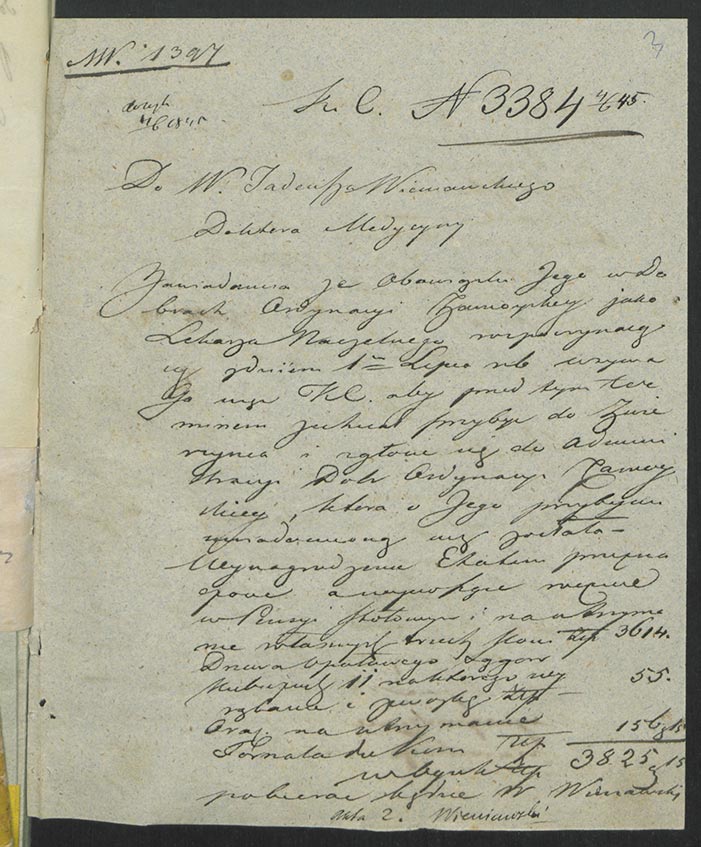 3
NN. 1397
K. C. N 3384 4/6 45.
4/6 1845
Do W. Tadeusza Wieniawskiego
Doktora Medycyny
Zawiadamia że Obowiązki Jego w Do
brach Ordynacyi Zamoyskiey jako
Lekarza Naczelnego rozpoczynają
się z dniem 1m Lipca rb wzywa
Go więc KC. aby przed tym ter
minem zechciał przybyć do Zwie
rzyńca i zgłosić się do Admini
stracyi Dóbr Ordynacyi Zamoy
skiey, która o Jego przybyciu
uwiadomioną już została –
Wynagrodzenie Etatem przepisa
rocznie
w Pensyi stołowym i na utrzyma
nie własnych trzech Koni złp 3614.
Drzewa opałowego sążni
Kubicznych 11 na którego wy
rąbanie i zwózkę złp 55.
Oraz na utrzymanie
Fornala do Koni złp 156 g 15
w ogóle złp 3825 g 15
pobierać będzie W Wieniawski
akta 2. Wieniawski